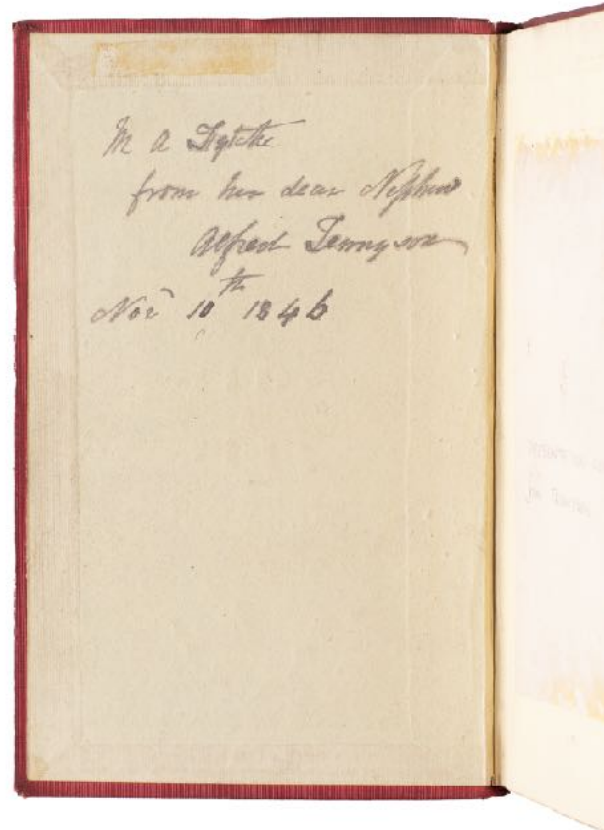 M A Fytche
from her dear Nephew
Alfred Tennyson
Novr 10th 1846